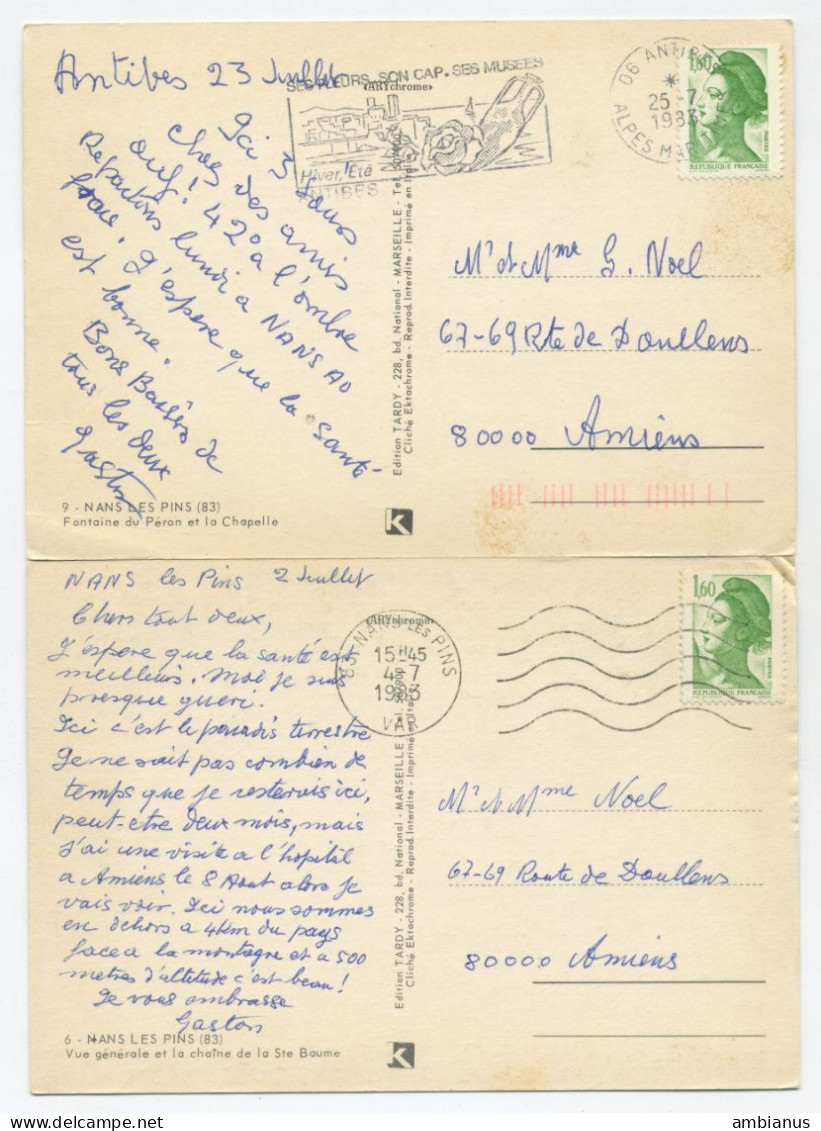 Antibes 23 Juillet
SES FLEURS. SON CAP. SES MUSEES
«ARYchrome»
Hiver, Eté
ANTIBES
06 ANTIBES
25 -7
1983
ALPES MARITIMES
1,60
POSTES
REPUBLIQUE FRANÇAISE
Ici 3 jours
chez des amis
ouf! 42° a l'ombre
Repartons lundi a NANS AO
J'espere que la santé
est bonne.
Bons Baisers de
tous les deux
Gaston
Mr et Mme G. Noel
67-69 Rte de Doullens
80000 Amiens
Edition TARDY - 228, bd. National - MARSEILLE - Tel.
Cliché Ektachrome - Reprod. Interdite - Imprimé en
9 - NANS LES PINS (83)
Fontaine du Péron et la Chapelle
K
NANS les Pins 2 Juillet
Chers tout deux,
J'éspere que la santé est
meilleurs. Moi je suis
presque gueri.
Ici c'est le paradis terrestre
Je ne sait pas combien de
temps que je resterais ici,
peut-etre deux mois, mais
J'ai une visite a l'hopital
a Amiens le 8 Aout alors je
vais voir. Ici nous sommes
en dehors a 4km du pays
face a la montagne et a 500
metres d'altitude c'est beau!
Je vous embrasse
Gaston
«ARYchrome»
83 NANS LES PINS
15H45
4-7
1983
VAR
1,60
POSTES
REPUBLIQUE FRANÇAISE
Mr et Mme Noel
67-69 Route de Doullens
80000 Amiens
Edition TARDY - 228, bd. National - MARSEILLE - Tel.
Cliché Ektachrome - Reprod. Interdite - Imprimé en
6 - NANS LES PINS (83)
Vue générale et la chaîne de la Ste Baume
K
delcampe.net
ambianus